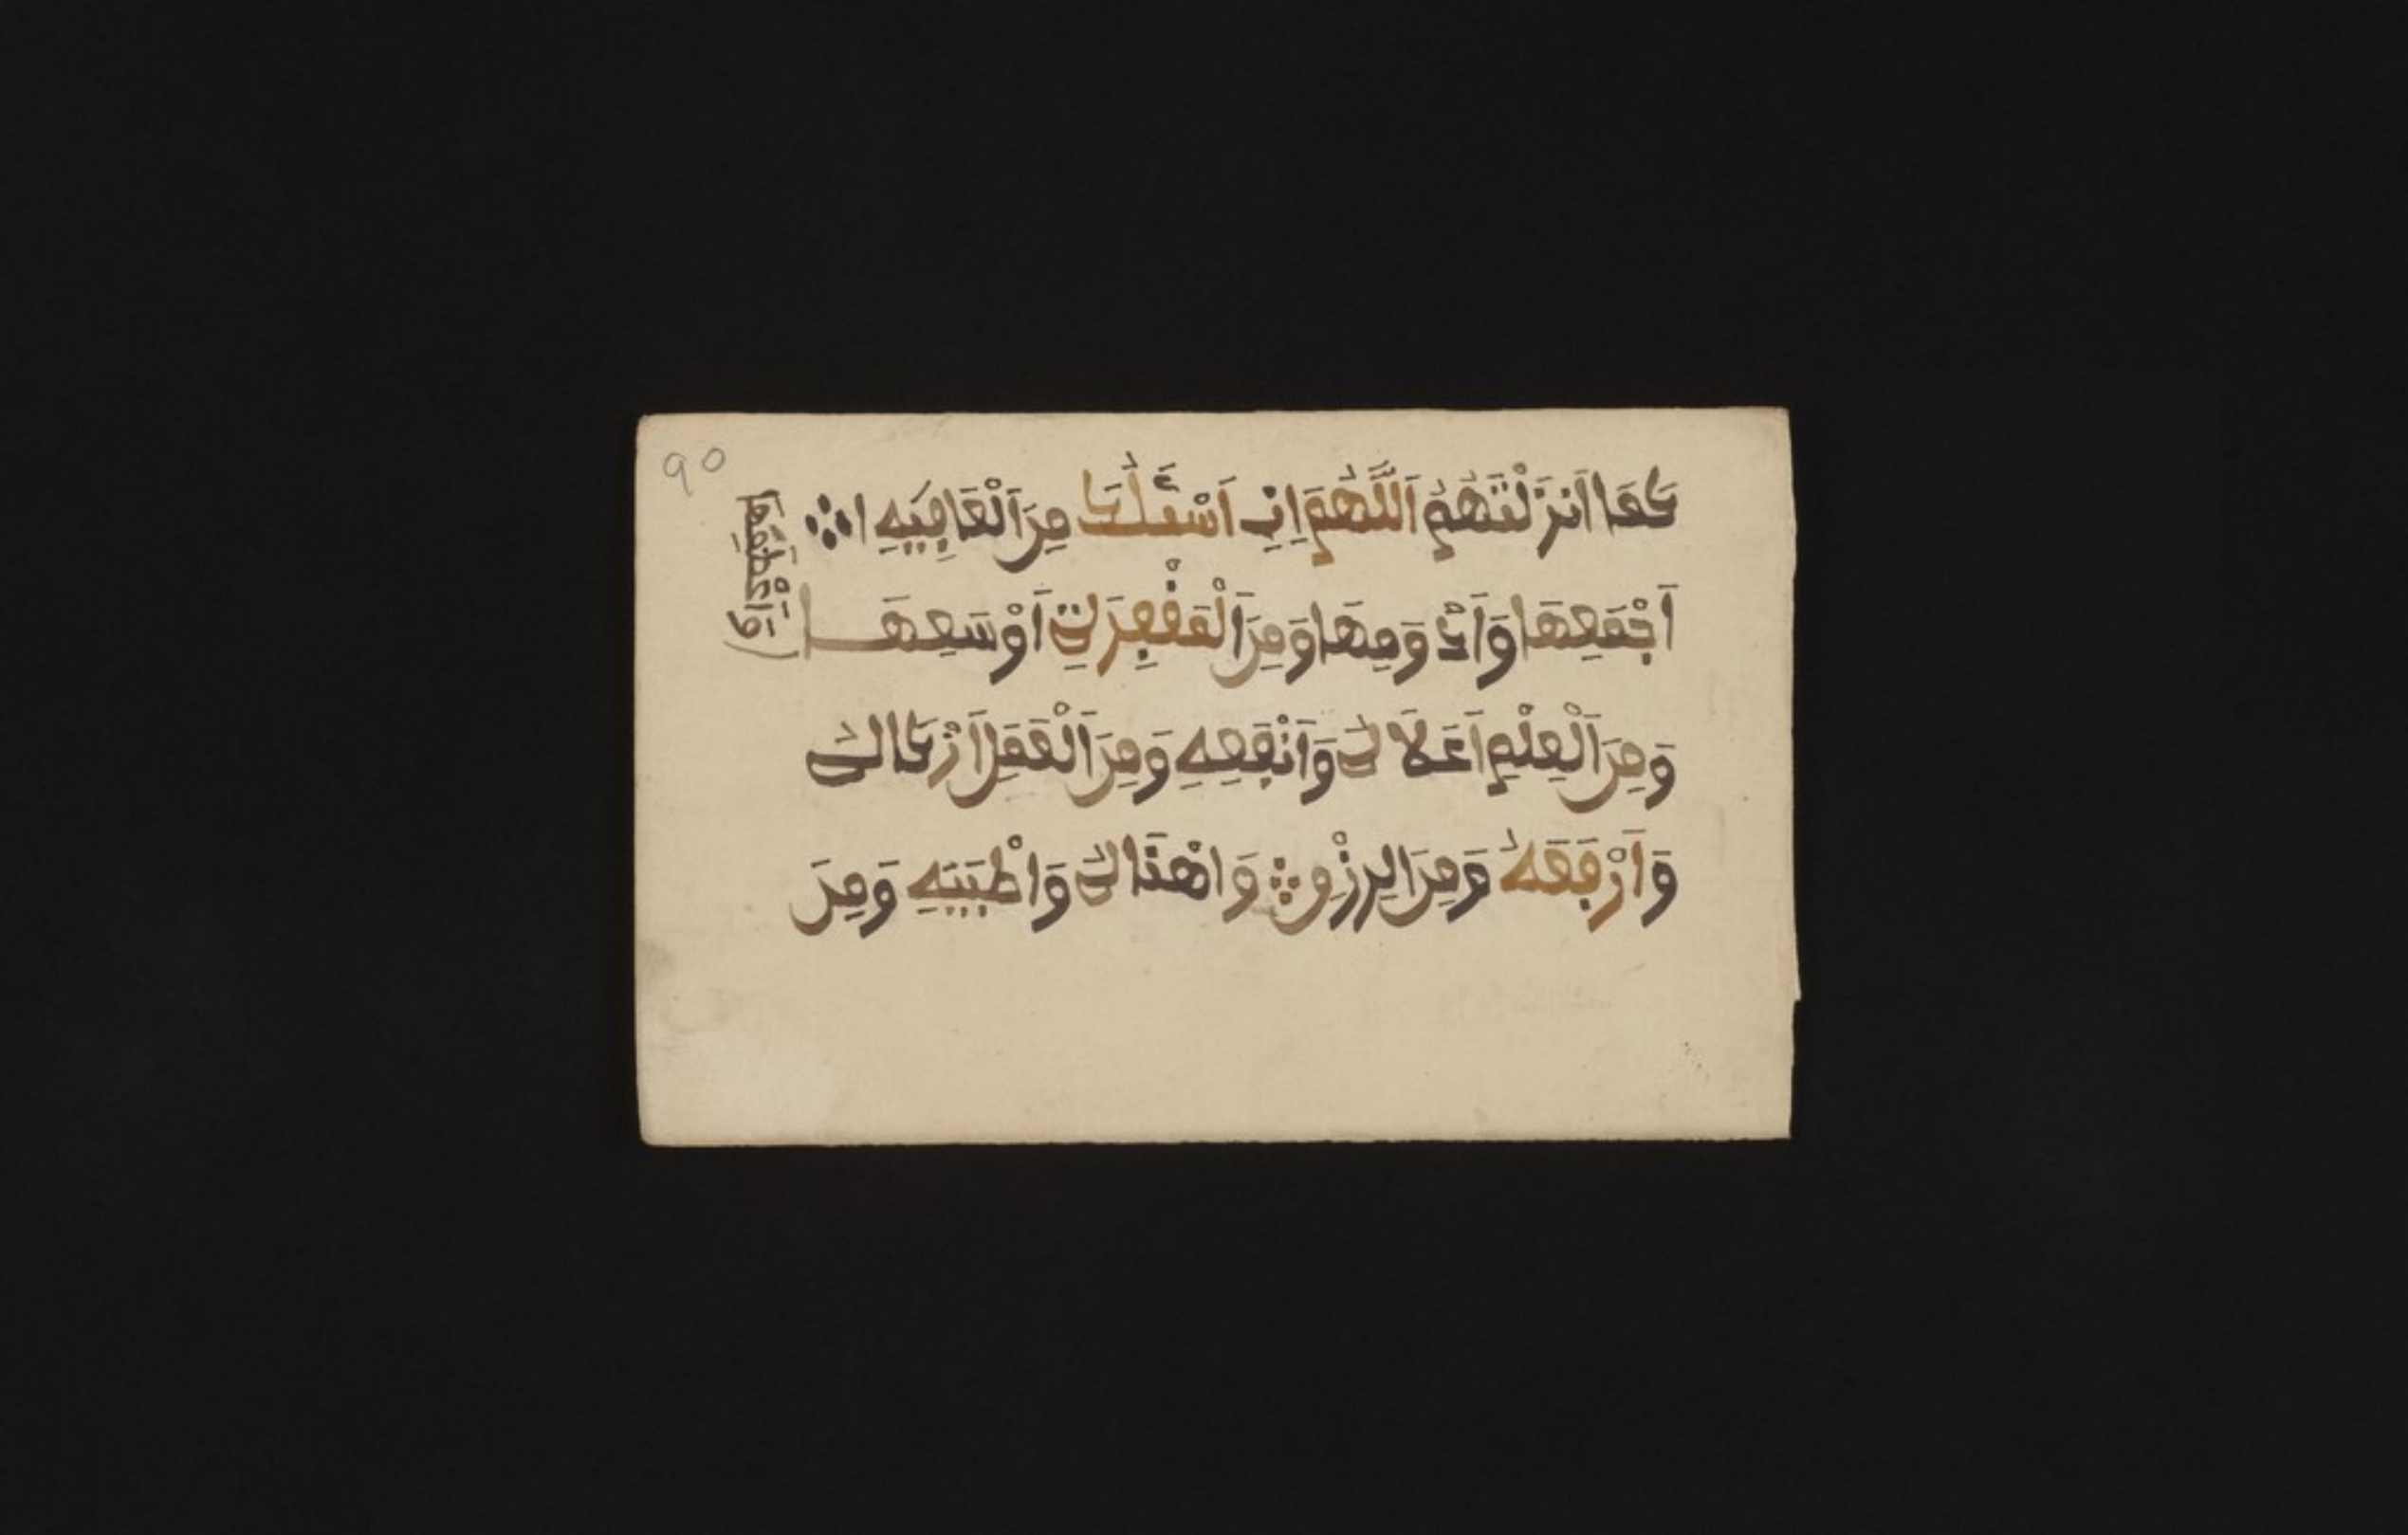 كَمَا اَنْزَلْتَهُمُ اَللَّهُمَ اِنِ اَسْئَلُكَ مِنَ اَلْعَافِيَهِ ا
اَجْمَعِهَا وَاَدْوَمِهَا وَمِنَ اَلْمَغْفِرَتِ اَوْسَعِهَا
وَاَعْظَمِهَا
وَمِنَ اَلْعِلْمِ اَعَلَا لَىٰ وَاَنْفَعِهِ وَمِنَ اَلْعَمَلِ اَزْكَالَىٰ
وَاَرْفَعَهُ وَمِنَ الِرِزْقِ وَاهْنَالَىٰ وَاطْيَبِهِ وَمِنَ
90